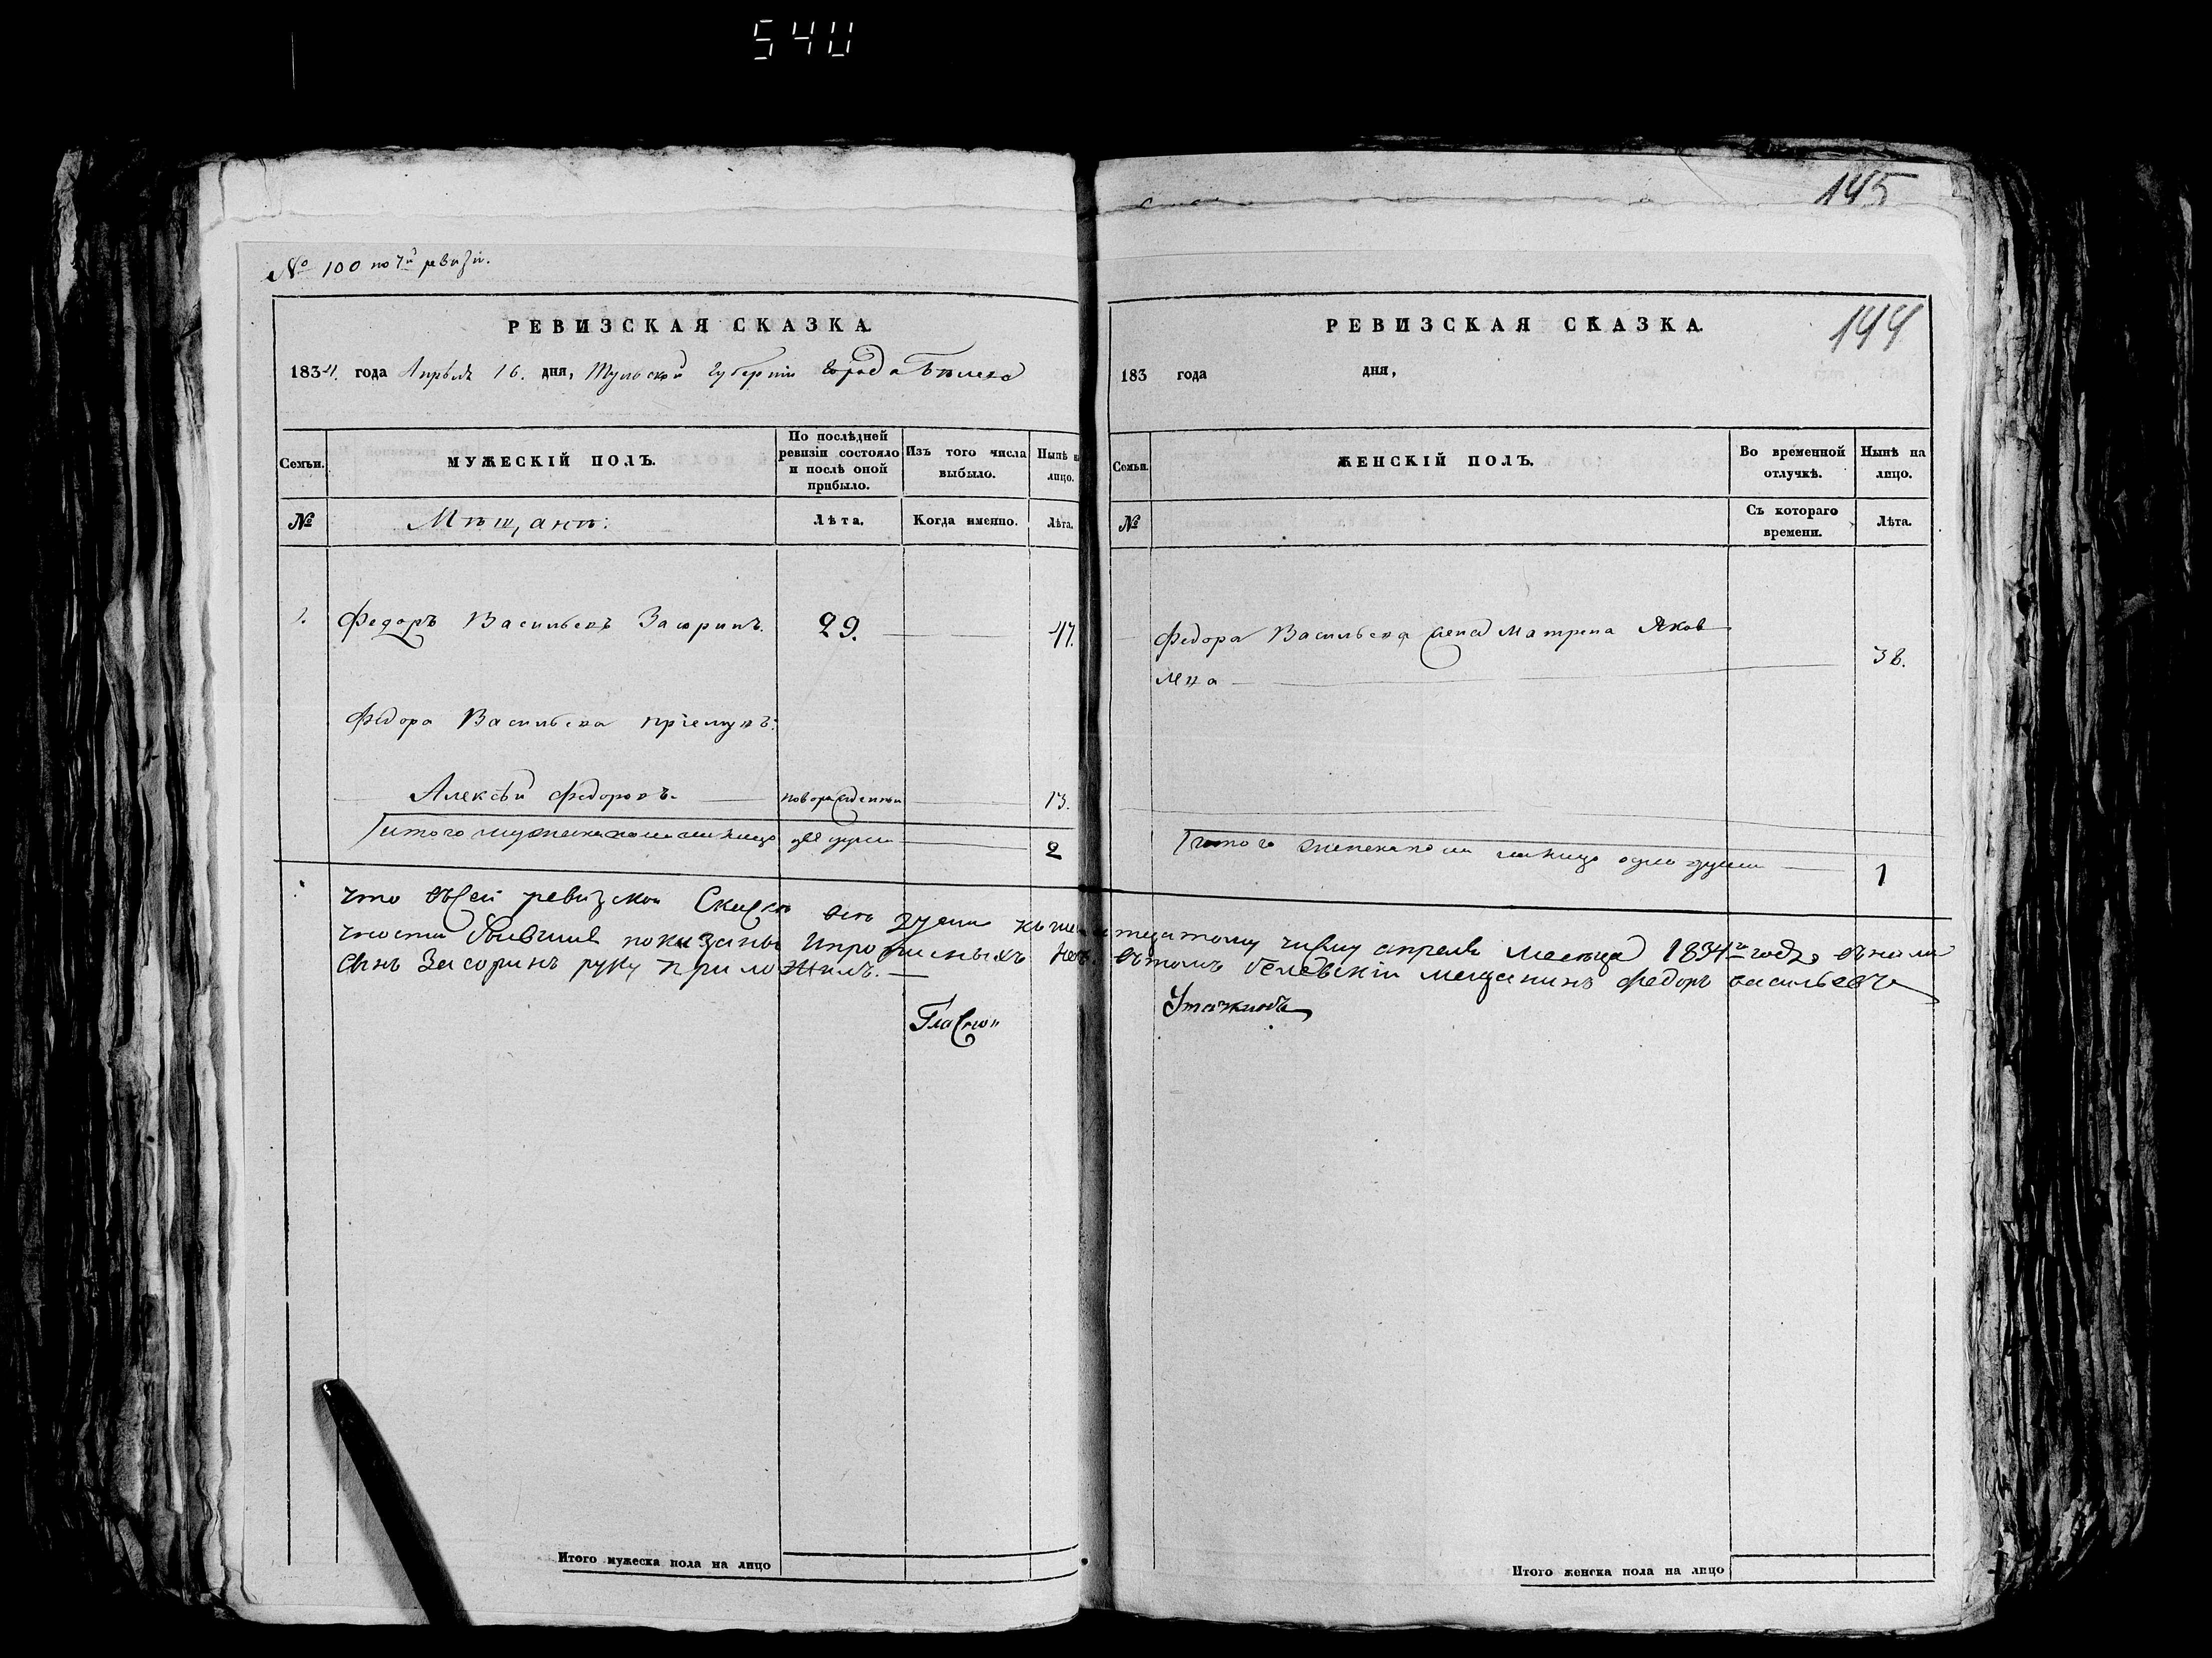 540
145
№ 100 по 7й ревизіи.
РЕВИЗСКАЯ СКАЗКА.
1834. года Апрѣля 16. дня, Тульской губерніи города Бѣлева
Семьи.
МУЖЕСКІЙ ПОЛЪ.
По послѣдней ревизіи состояло и послѣ оной прибыло.
Изъ того числа выбыло.
Нынѣ на лицо.
№
Мѣщанѣ:
Лѣта.
Когда именно.
Лѣта.
1. Федоръ Васильевъ Засоринъ. 29. 47.
Федора Васильева пріемухъ:
Алексѣй Федоровъ. новорожденный 13.
Итого мужеска пола на лицо две души 2
144
РЕВИЗСКАЯ СКАЗКА.
183 года дня,
Семьи.
ЖЕНСКІЙ ПОЛЪ.
Во временной отлучкѣ.
Нынѣ на лицо.
№
Съ котораго времени.
Лѣта.
Федора Васильева жена Матрена Яков
лева 38.
Итого женска пола на лицо одна душа 1
Что въсей ревизской Скаскѣ все души кошестнадцатому числу апреля месяца 1834го года въ нали
чности бывшие показаны ипрописныхъ нетъ. вътомъ белевскiй мещанинъ федоръ васильевъ
сынъ Засоринъ руку приложилъ.
Гласной
Утажковъ
Итого мужеска пола на лицо
Итого женска пола на лицо